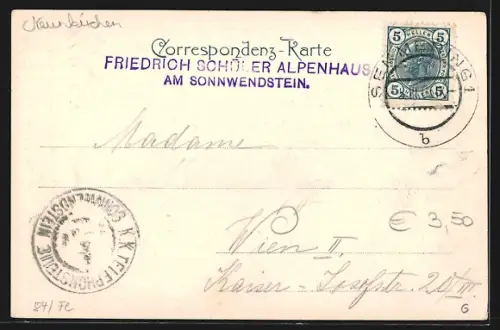 Neunkirchen
Correspondenz-Karte
FRIEDRICH SCHÜLER ALPENHAUS
AM SONNWENDSTEIN.
5 HELLER 5
5 5
SEMMERING 1
b
Madame
K.K. TELEPHONSTELLE
SONNWENDSTEIN
€ 3,50
Wien II.
Kaiser-Josefstr. 20
84/Fe
G